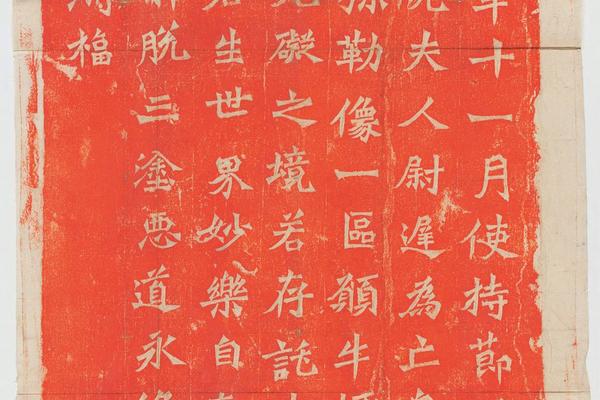 年十一月使持節
夫人尉遲為亡
勒像一區願牛
礙之境若存託
若生世界妙樂自
解脫三塗惡道永
福